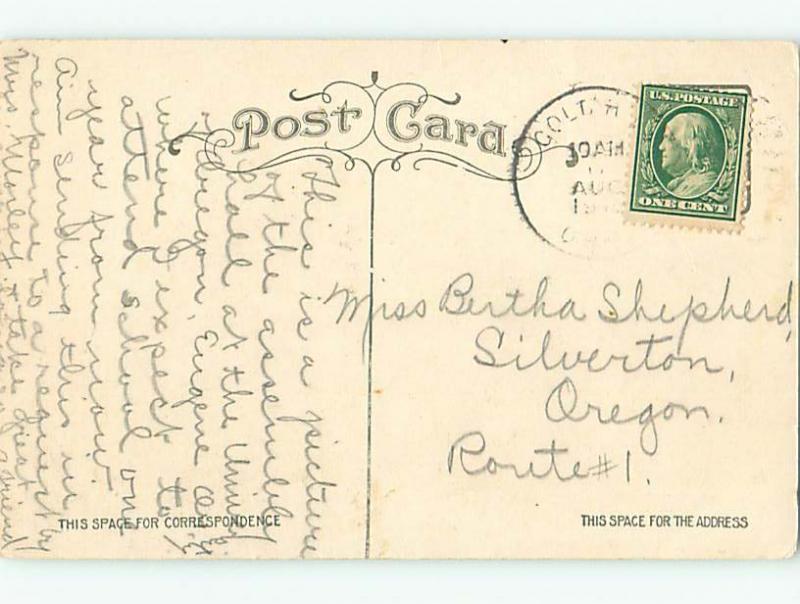 Post Card
U.S. POSTAGE
ONE CENT
10 AM
AUG
This is a picture
of the assembly
hall at the Univ.
Oregon, Eugene
where I expect to
attend school one
year from now.
Am sending this in
response to a request by
Mrs. Morley
a friend
Miss Bertha Shepherd,
Silverton,
Oregon.
Route #1.
THIS SPACE FOR CORRESPONDENCE
THIS SPACE FOR THE ADDRESS